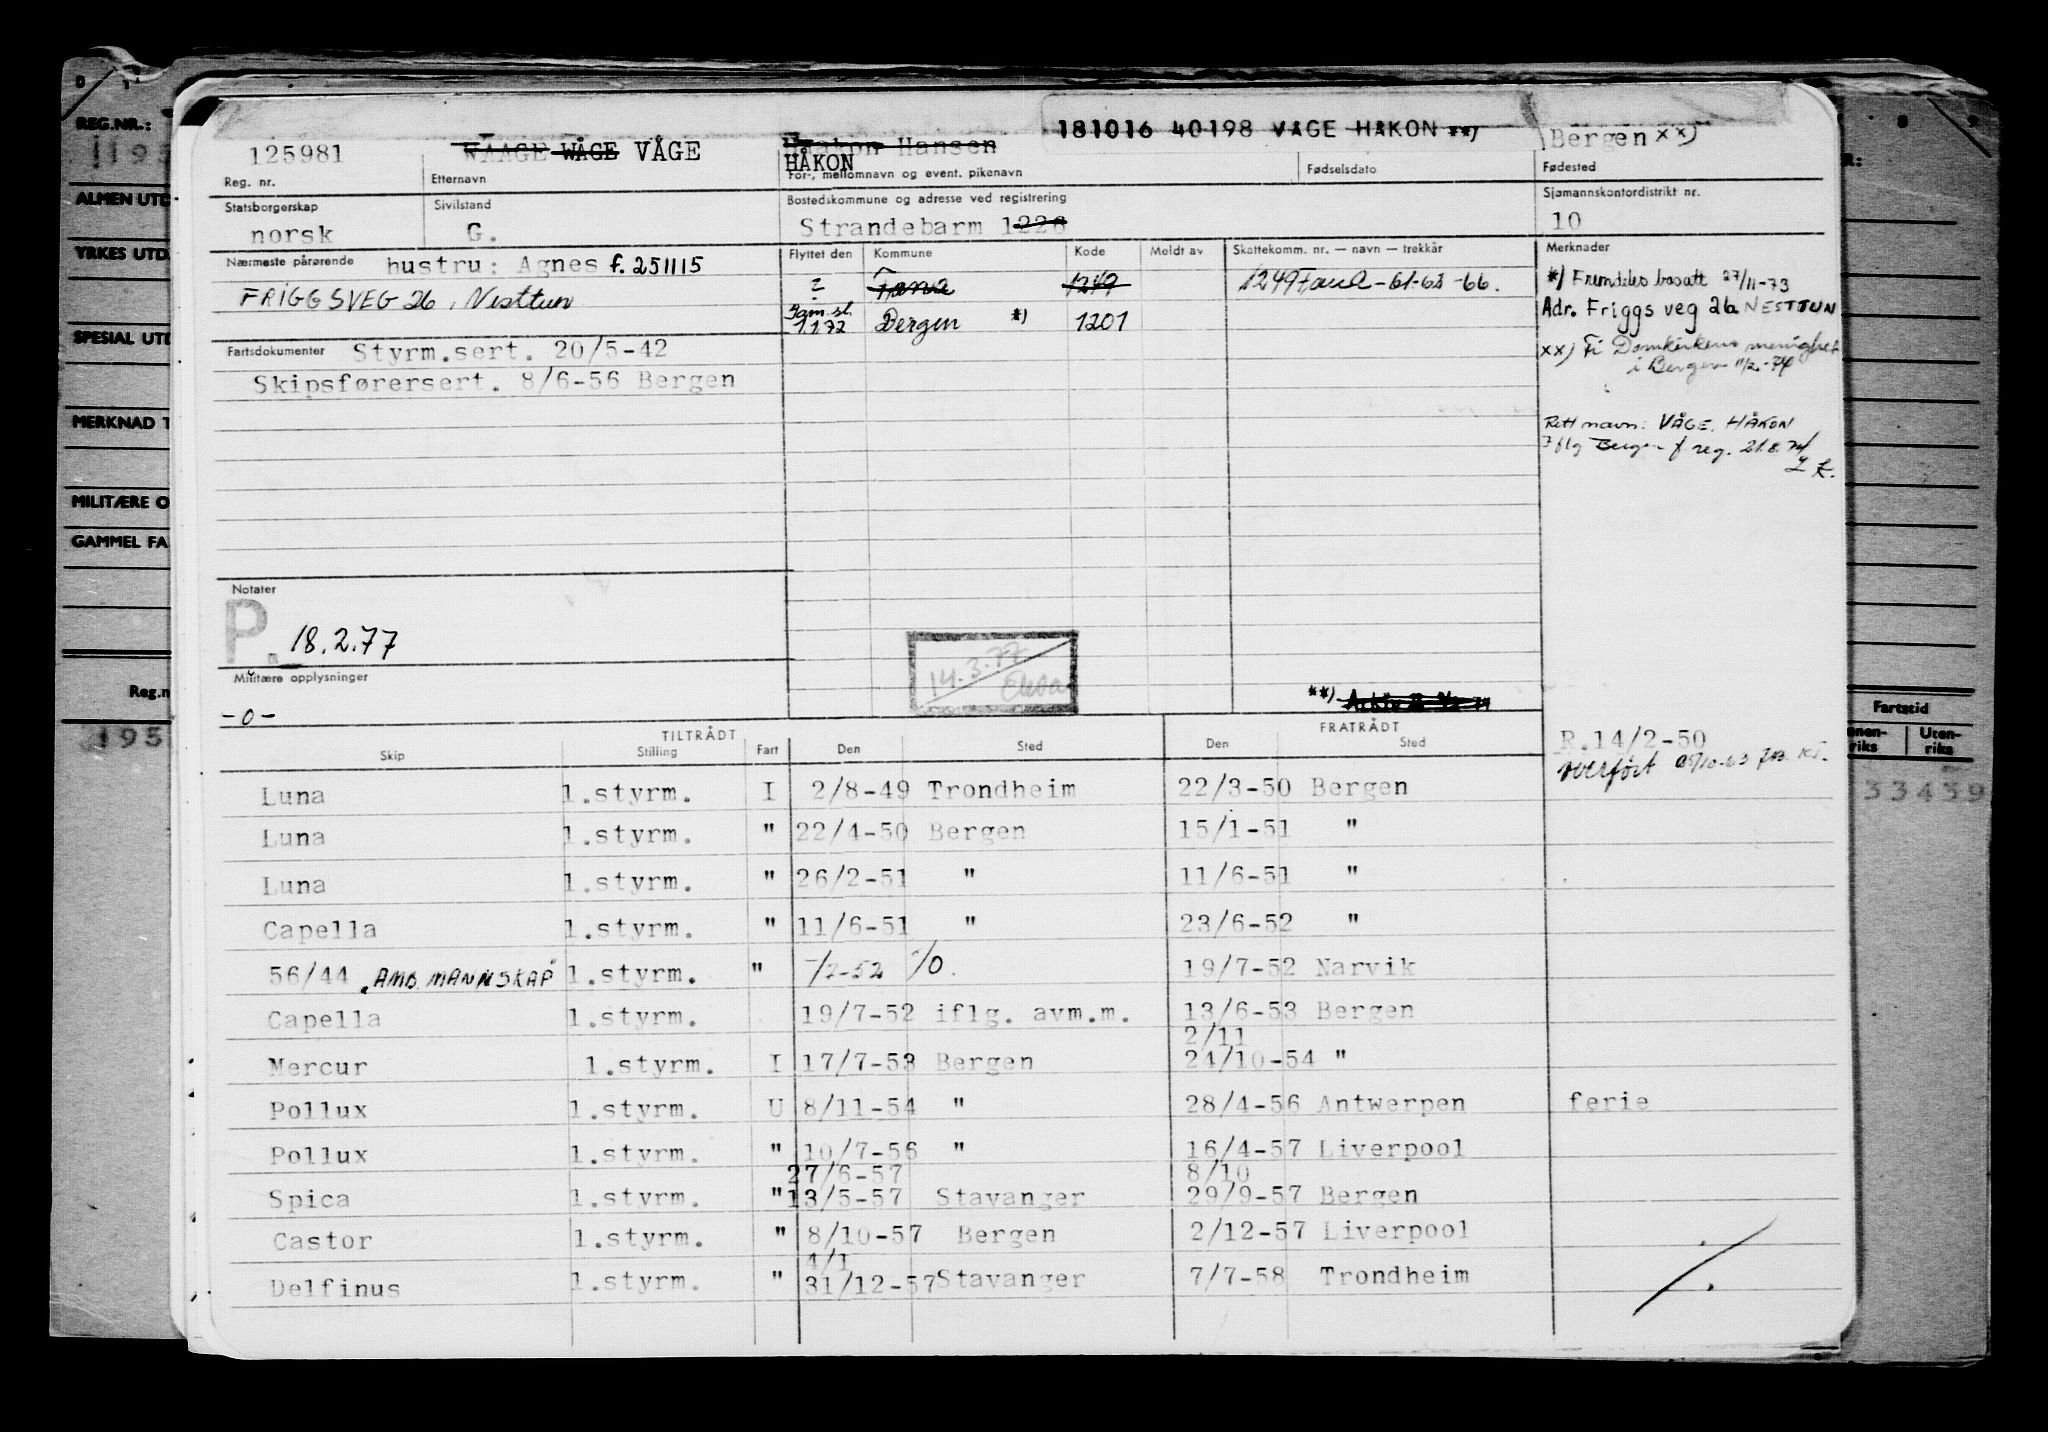 181016 40198 VÅGE HÅKON **)
REG.NR.:
125981
WAAGE WÅGE VÅGE
Haakon Hansen
HÅKON
Bergen xx)
Reg. nr.
Etternavn
For-, mellomnavn og event. pikenavn
Fødselsdato
Fødested
Statsborgerskap
Sivilstand
Bostedskommune og adresse ved registrering
Sjømannskontordistrikt nr.
norsk
G.
Strandebarm 1226
10
Nærmeste pårørende
hustru: Agnes f. 251115
Flyttet den
Kommune
Kode
Meldt av
Skattekomm. nr. — navn — trekkår
Merknader
FRIGGSVEG 26, Nesttun
?
Fana
1249
1249 Fana - 61-62 -66.
*) Fremdeles bosatt 27/11-73
Sam.sl.
1172
Bergen *)
1201
Adr. Friggs veg 26 NESTTUN
Fartsdokumenter
Styrm.sert. 20/5-42
xx) Fi Domkirkens menighet
i Bergen 11/2-74
Skipsførersert. 8/6-56 Bergen
Rett navn: VÅGE, HÅKON
Iflg Bergen f. reg. 21.8.74
ALMEN UTD
YRKES UTD.
SPECIAL UTD
MERKNAD T
MILITÆRE O
GAMMEL FA
Notater
P.
18.2.77
14.3.77
Militære opplysninger
-0-
**)
Reg.n
195
TILTRÅDT
FRATRÅDT
Skip
Stilling
Fart
Den
Sted
Den
Sted
R.14/2-50
overført
Fartstid
Uten-
riks
33439
Luna 1.styrm. I 2/8-49 Trondheim 22/3-50 Bergen
Luna 1.styrm. " 22/4-50 Bergen 15/1-51 "
Luna 1.styrm. " 26/2-51 " 11/6-51 "
Capella 1.styrm. " 11/6-51 " 23/6-52 "
56/44 "AMB. MANNSKAP" 1.styrm. " -/7-52 -/0. 19/7-52 Narvik
Capella 1.styrm. 19/7-52 iflg. avm.m. 13/6-53 Bergen
2/11
Mercur 1.styrm. I 17/7-53 Bergen 24/10-54 "
Pollux 1.styrm. U 8/11-54 " 28/4-56 Antwerpen ferie
Pollux 1.styrm. " 10/7-56 " 16/4-57 Liverpool
27/6-57 8/10
Spica 1.styrm. " 13/5-57 Stavanger 29/9-57 Bergen
Castor 1.styrm. " 8/10-57 Bergen 2/12-57 Liverpool
4/1
Delfinus 1.styrm. " 31/12-57 Stavanger 7/7-58 Trondheim